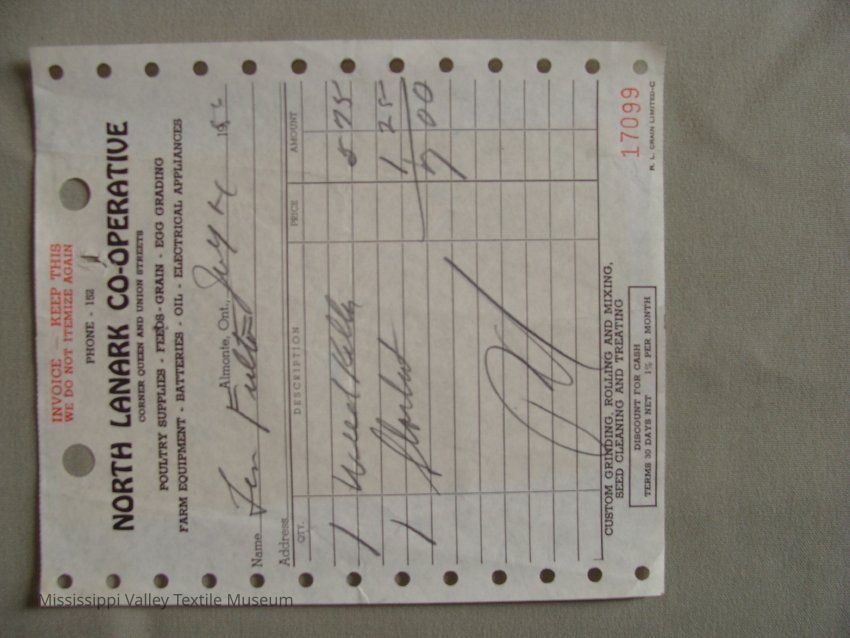 INVOICE — KEEP THIS
WE DO NOT ITEMIZE AGAIN
PHONE - 152
NORTH LANARK CO-OPERATIVE
CORNER QUEEN AND UNION STREETS
POULTRY SUPPLIES - FEEDS - GRAIN - EGG GRADING
FARM EQUIPMENT - BATTERIES - OIL - ELECTRICAL APPLIANCES
Almonte, Ont., 19
Name Fulton
Address
QTY. DESCRIPTION PRICE AMOUNT
1 Weed Killer 5 75
1 1 25
7 00
CUSTOM GRINDING, ROLLING AND MIXING,
SEED CLEANING AND TREATING
DISCOUNT FOR CASH
TERMS 30 DAYS NET 1% PER MONTH
17099
R. L. CRAIN LIMITED-C
Mississippi Valley Textile Museum